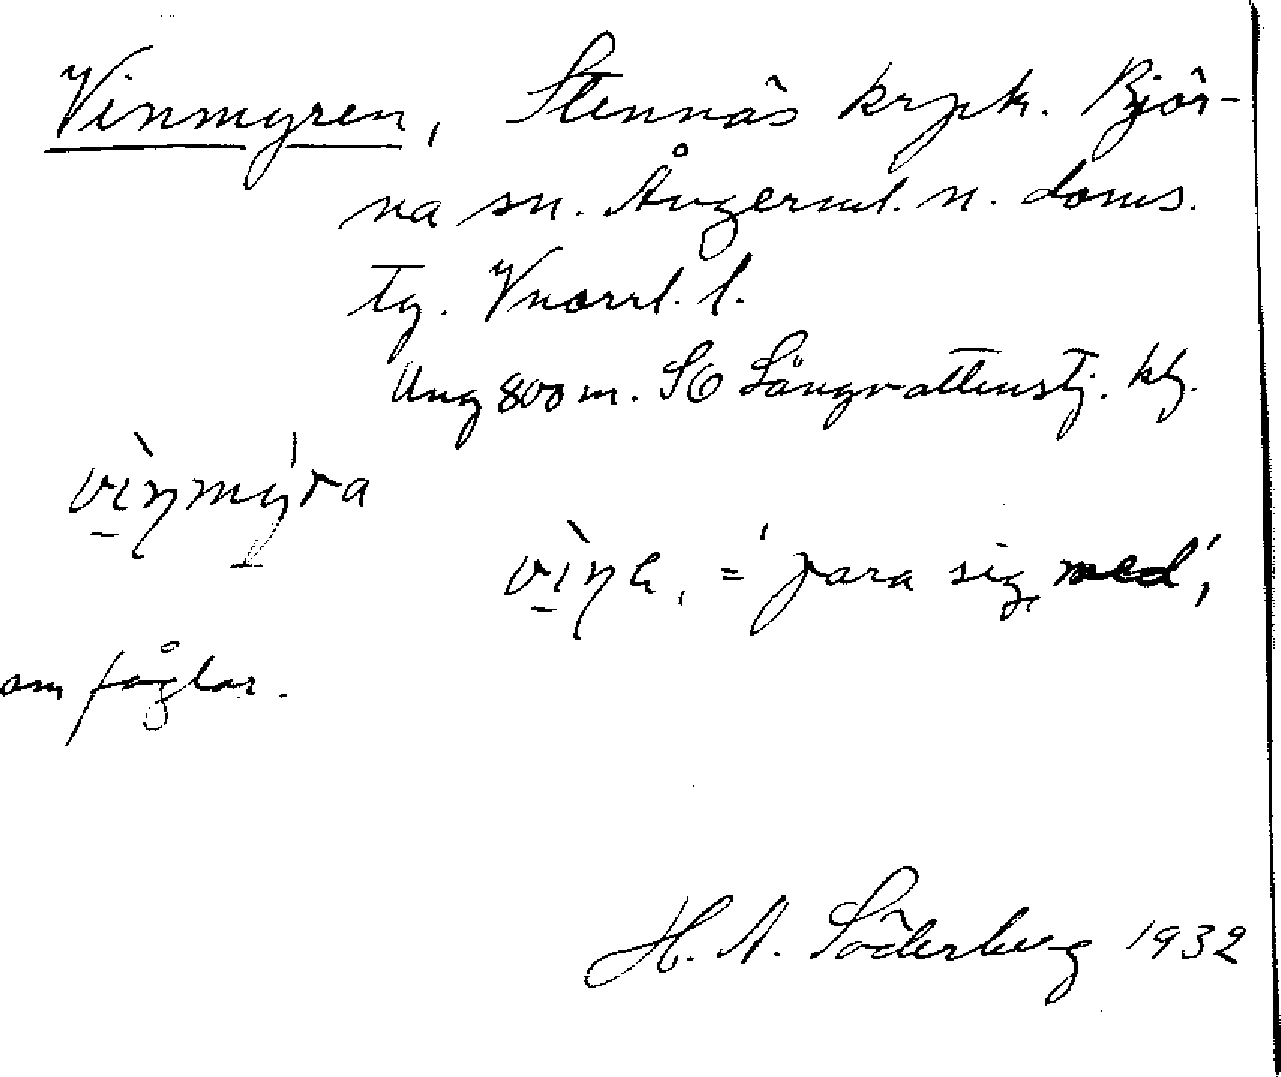 Vinmyren, Stennäs krpk. Björ-
na sn. Ångerml. n. doms.
tg. Vnorrl. l.
Ung 800 m. SO Långvattenstj. klg.
vìŋmy̍ra
vìŋa, = 'para sig med',
om fåglar.
H. A. Söderberg 1932